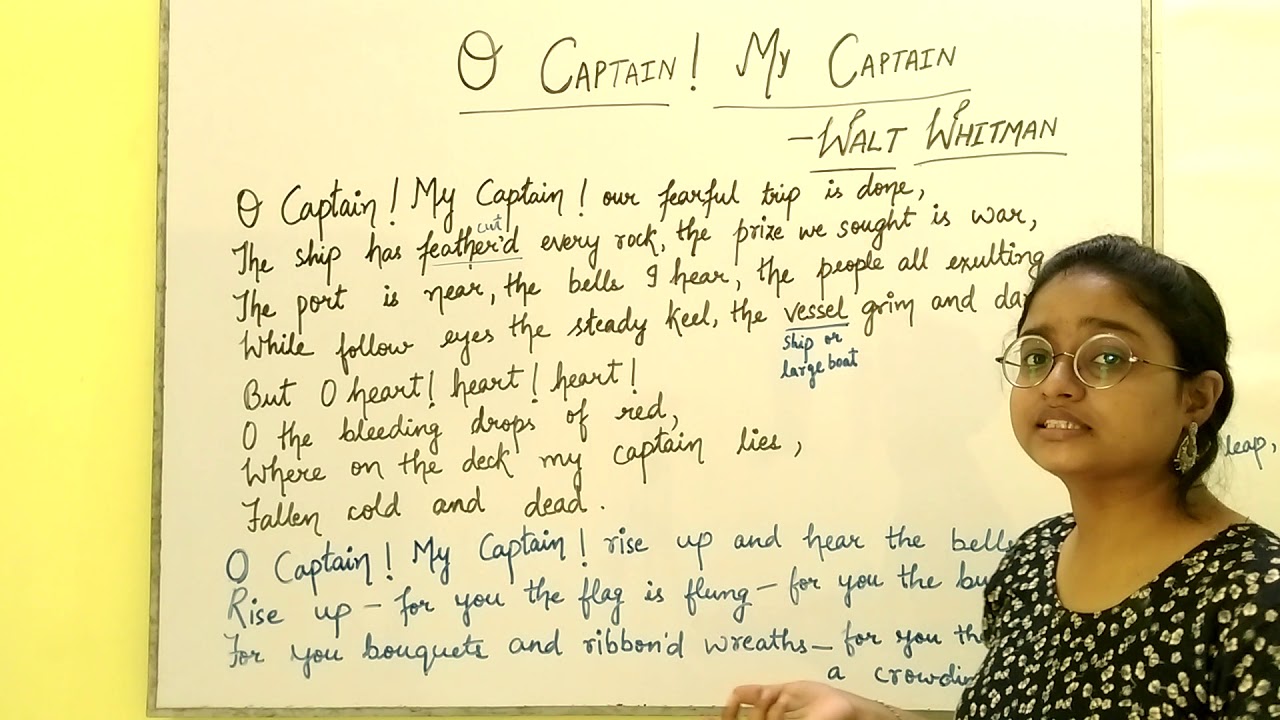 O CAPTAIN! MY CAPTAIN
-WALT WHITMAN
O Captain! My Captain! our fearful trip is done,
cut
The ship has feather'd every rock, the prize we sought is war,
The port is near, the bells I hear, the people all exulting
While follow eyes the steady keel, the vessel grim and da
ship or
large boat
But O heart! heart! heart!
O the bleeding drops of red,
Where on the deck my captain lies,
Fallen cold and dead.
leap,
O Captain! My Captain! rise up and hear the bells
Rise up - for you the flag is flung - for you the bu
For you bouquets and ribbon'd wreaths - for you the
a crowdin